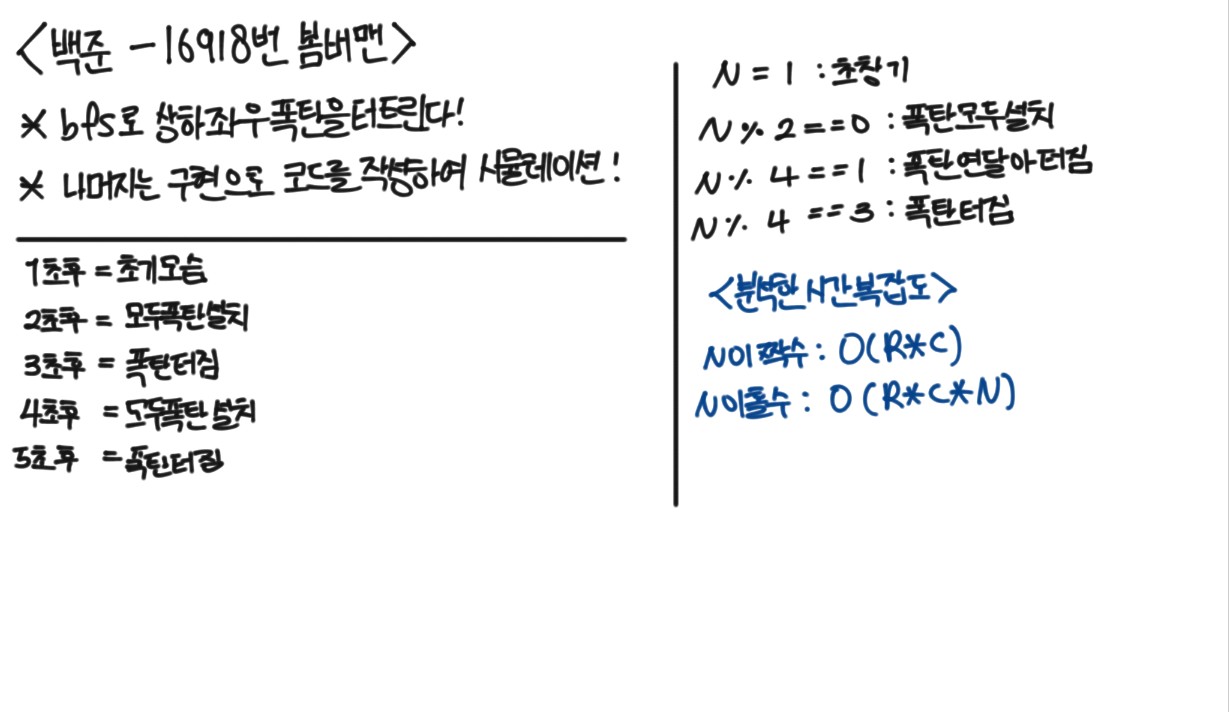 <백준 - 16918번 봄버맨>
* bfs로 상하좌우폭탄을터트린다!
* 나머지는 구현으로 코드를 작성하여 시뮬레이션!
1초후 = 초기모습
2초후 = 모두폭탄설치
3초후 = 폭탄터짐
4초후 = 모두폭탄설치
5초후 = 폭탄터짐
N = 1 : 초창기
N % 2 == 0 : 폭탄모두설치
N % 4 == 1 : 폭탄연달아터짐
N % 4 == 3 : 폭탄터짐
<분석한시간복잡도>
N이짝수 : O(R*C)
N이홀수 : O(R*C*N)